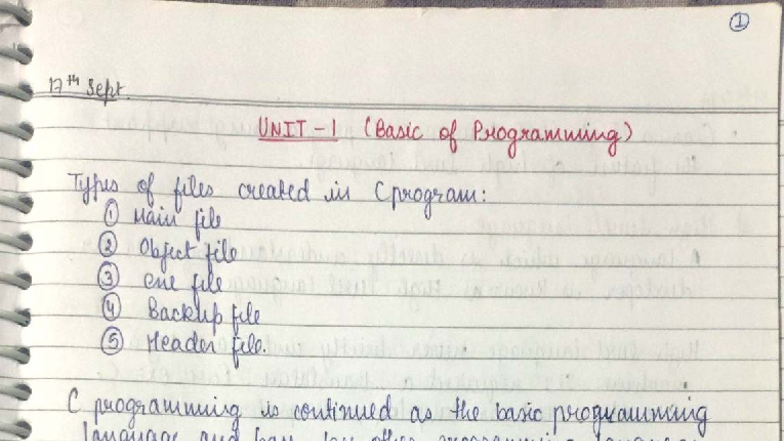 ①
17th Sept.
UNIT-1 (Basic of Programming)
Types of files created in C program:
① Main file
② Object file
③ exe file
④ Backup file
⑤ Header file.
C programming is continued as the basic programming
language and